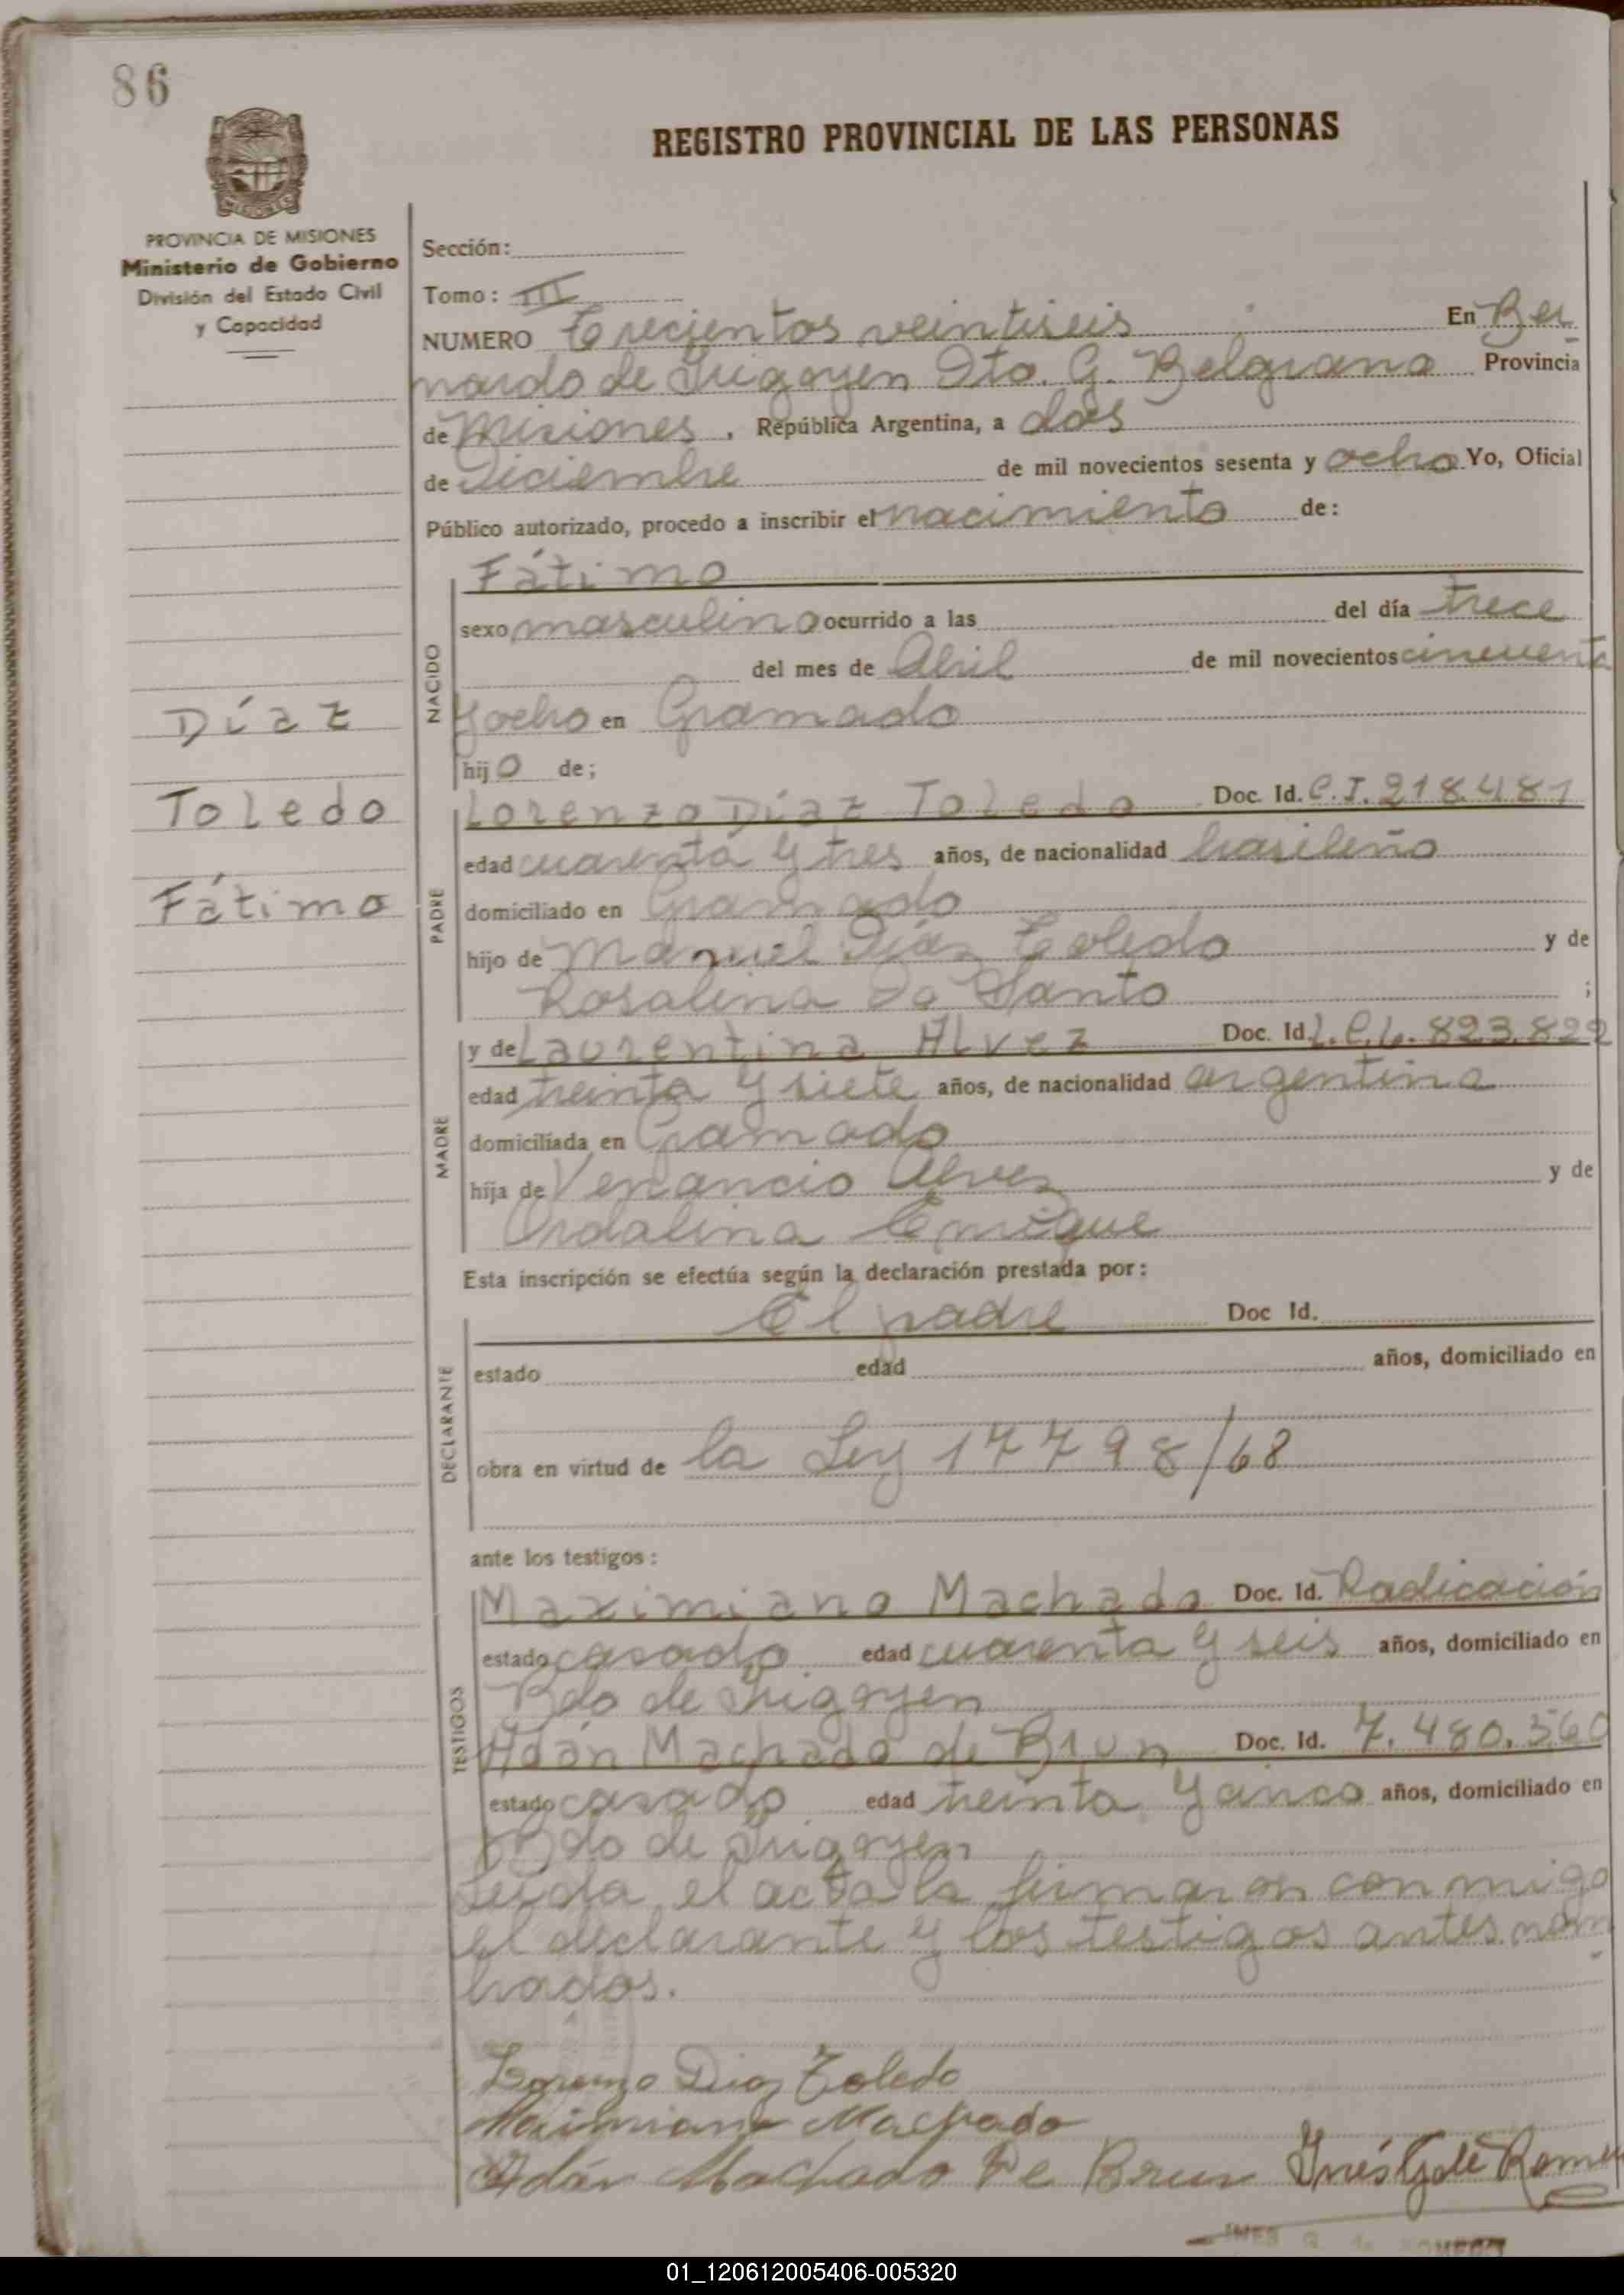 86
REGISTRO PROVINCIAL DE LAS PERSONAS
MISIONES
PROVINCIA DE MISIONES
Ministerio de Gobierno
División del Estado Civil
y Capacidad
Sección:
Tomo: III
NUMERO Trecientos veintiseis En Ber
nardo de Irigoyen Dto. G. Belgrano Provincia
de Misiones, República Argentina, a dos
de Diciembre de mil novecientos sesenta y ocho Yo, Oficial
Público autorizado, procedo a inscribir el nacimiento de:
NACIDO
Fátimo
sexo masculino ocurrido a las del día trece
del mes de Abril de mil novecientos cincuenta
y ocho en Gramado
hijo de;
Díaz
Toledo
Fátimo
PADRE
Lorenzo Díaz Toledo Doc. Id. C.I. 218.481
edad cuarenta y tres años, de nacionalidad brasileño
domiciliado en Gramado
hijo de Manuel Díaz Toledo y de
Rosalina Do Santo ;
MADRE
y de Laurentina Alvez Doc. Id. L.C. 6.823.822
edad treinta y siete años, de nacionalidad argentina
domiciliada en Gramado
hija de Venancio Alvez y de
Ordalina Enrique
Esta inscripción se efectúa según la declaración prestada por:
DECLARANTE
El padre Doc Id.
estado edad años, domiciliado en
obra en virtud de la Ley 17798/68
ante los testigos:
TESTIGOS
Maximiano Machado Doc. Id. Radicación
estado casado edad cuarenta y seis años, domiciliado en
Bdo de Irigoyen
Adán Machado de Brun Doc. Id. 7.480.560
estado casado edad treinta y cinco años, domiciliado en
Bdo de Irigoyen
Leída el acta la firmaron conmigo
el declarante y los testigos antes nom
brados.
Lorenzo Diaz Toledo
Maximiano Machado
Adán Machado De Brun Inés G de Romero
INES G. de ROMERO
01_120612005406-005320